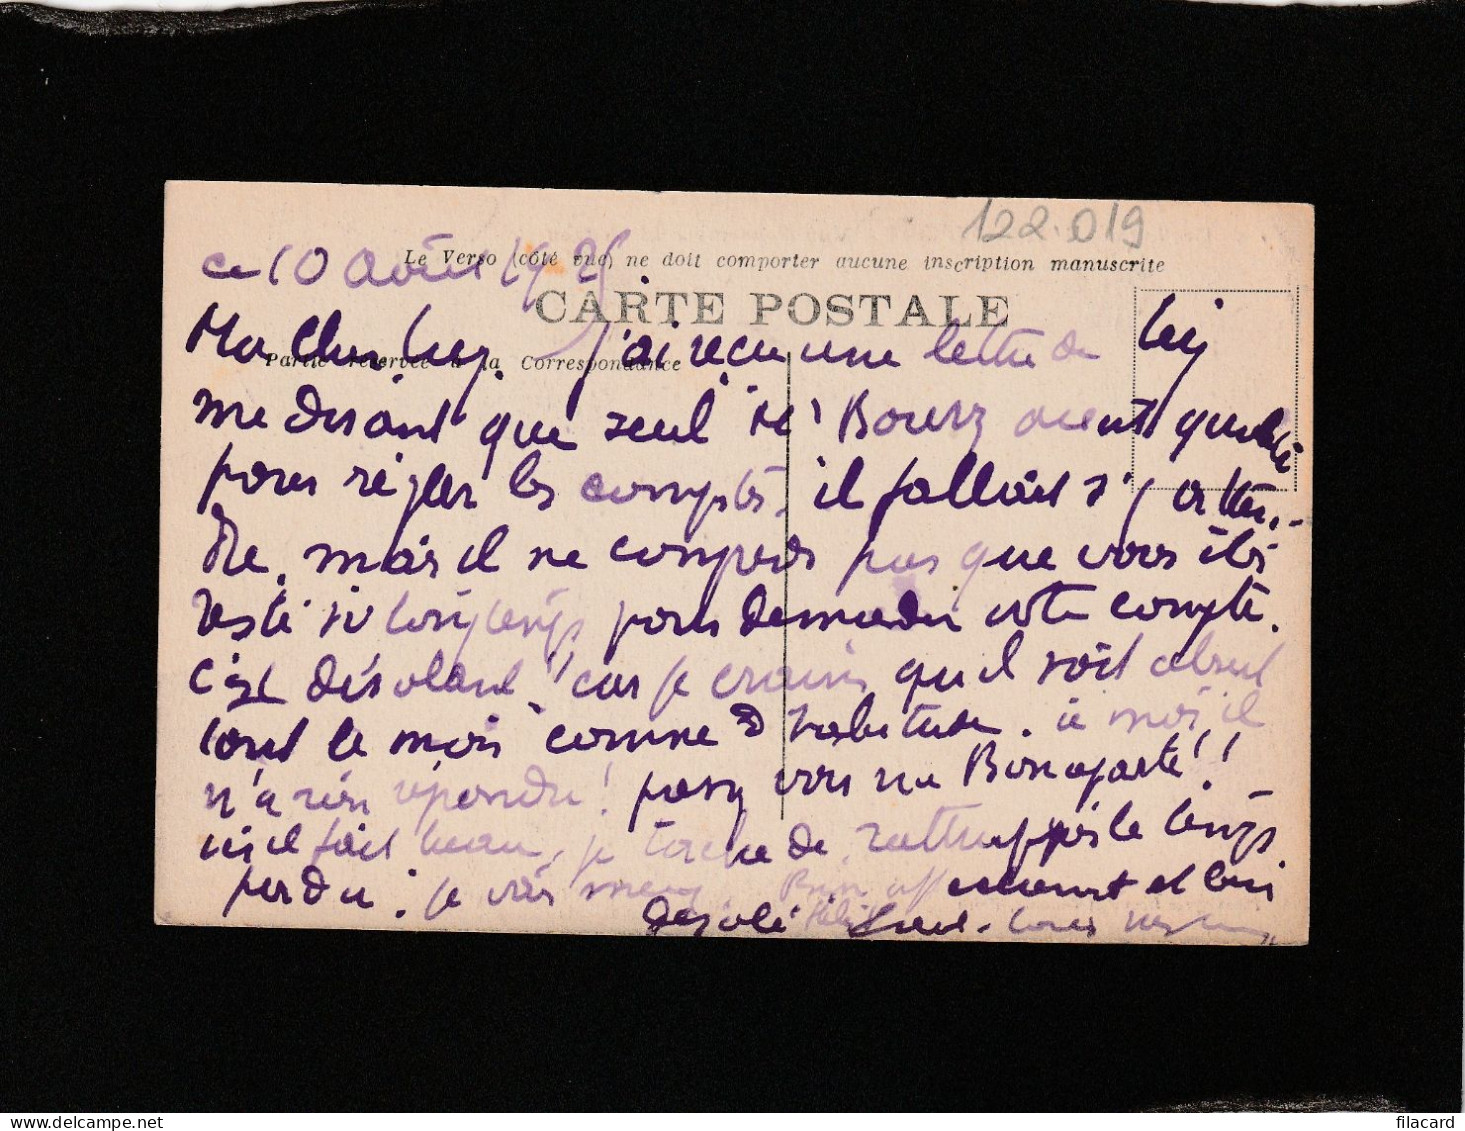 122.019
Le Verso (côté vue) ne doit comporter aucune inscription manuscrite
ce 10 Août 192
CARTE POSTALE
Partie réservée à la Correspondance
Ma Chère j'ai reçu une lettre de
me disant que seul Mr avait qualité
pour régler les comptes. il fallait s'y atten-
dre, mais il ne comprend pas que vous êtes
resté si longtemps pour demander votre compte.
c'est désolant car je crains qu'il soit absent
tout le mois comme d'habitude. à moi il
n'a rien répondu! Bonaparte!!
ici il fait beau, je tâche de rattrapper le temps
perdu. je Bien affectueusement et bien
désolé
filacard